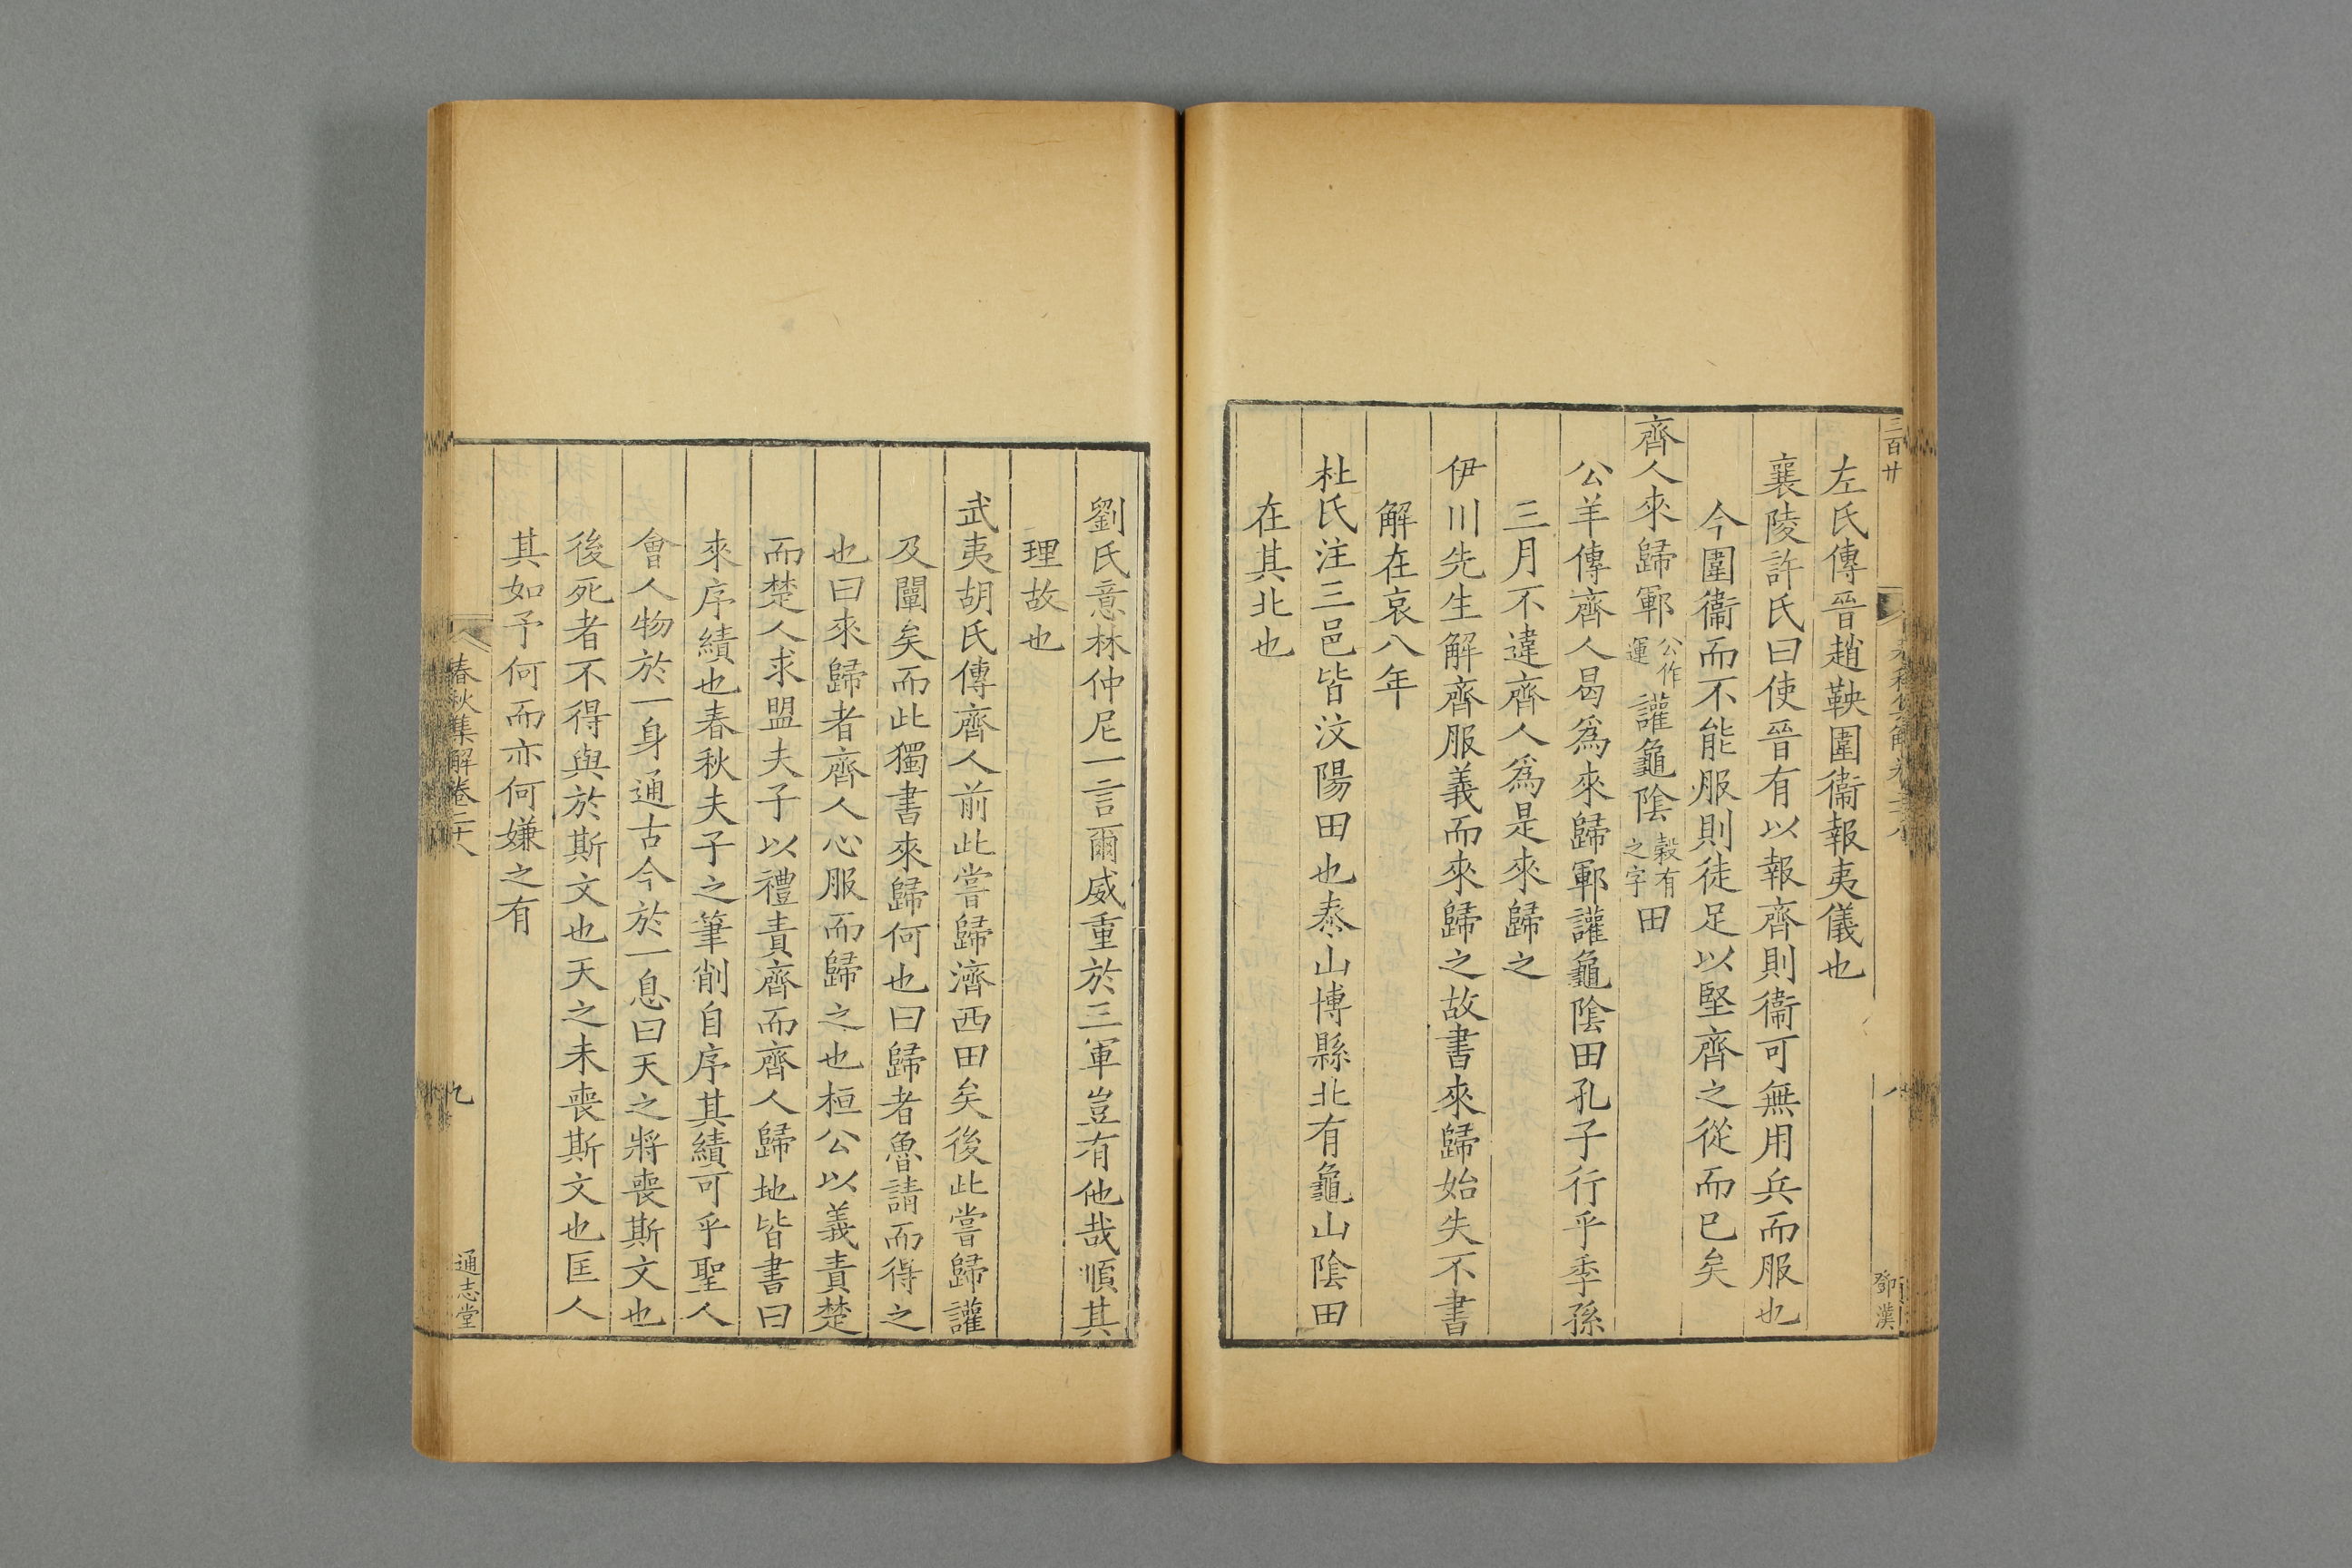 三百廿
左氏傳晉趙鞅圍衞報夷儀也
襄陵許氏曰使晉有以報齊則衞可無用兵而服也
今圍衞而不能服則徒足以堅齊之從而已矣
齊人來歸鄆公作運讙龜陰穀有之字田
公羊傳齊人曷爲來歸鄆讙龜陰田孔子行乎季孫
三月不違齊人爲是來歸之
伊川先生解齊服義而來歸之故書來歸始失不書
解在哀八年
杜氏注三邑皆汶陽田也泰山博縣北有龜山陰田
在其北也
八
鄧漢
劉氏意林仲尼一言爾威重於三軍豈有他哉順其
理故也
武夷胡氏傳齊人前此嘗歸濟西田矣後此嘗歸讙
及闡矣而此獨書來歸何也曰歸者魯請而得之
也曰來歸者齊人心服而歸之也桓公以義責楚
而楚人求盟夫子以禮責齊而齊人歸地皆書曰
來序績也春秋夫子之筆削自序其績可乎聖人
會人物於一身通古今於一息曰天之將喪斯文也
後死者不得與於斯文也天之未喪斯文也匡人
其如予何而亦何嫌之有
春秋集解卷二十八
九
通志堂